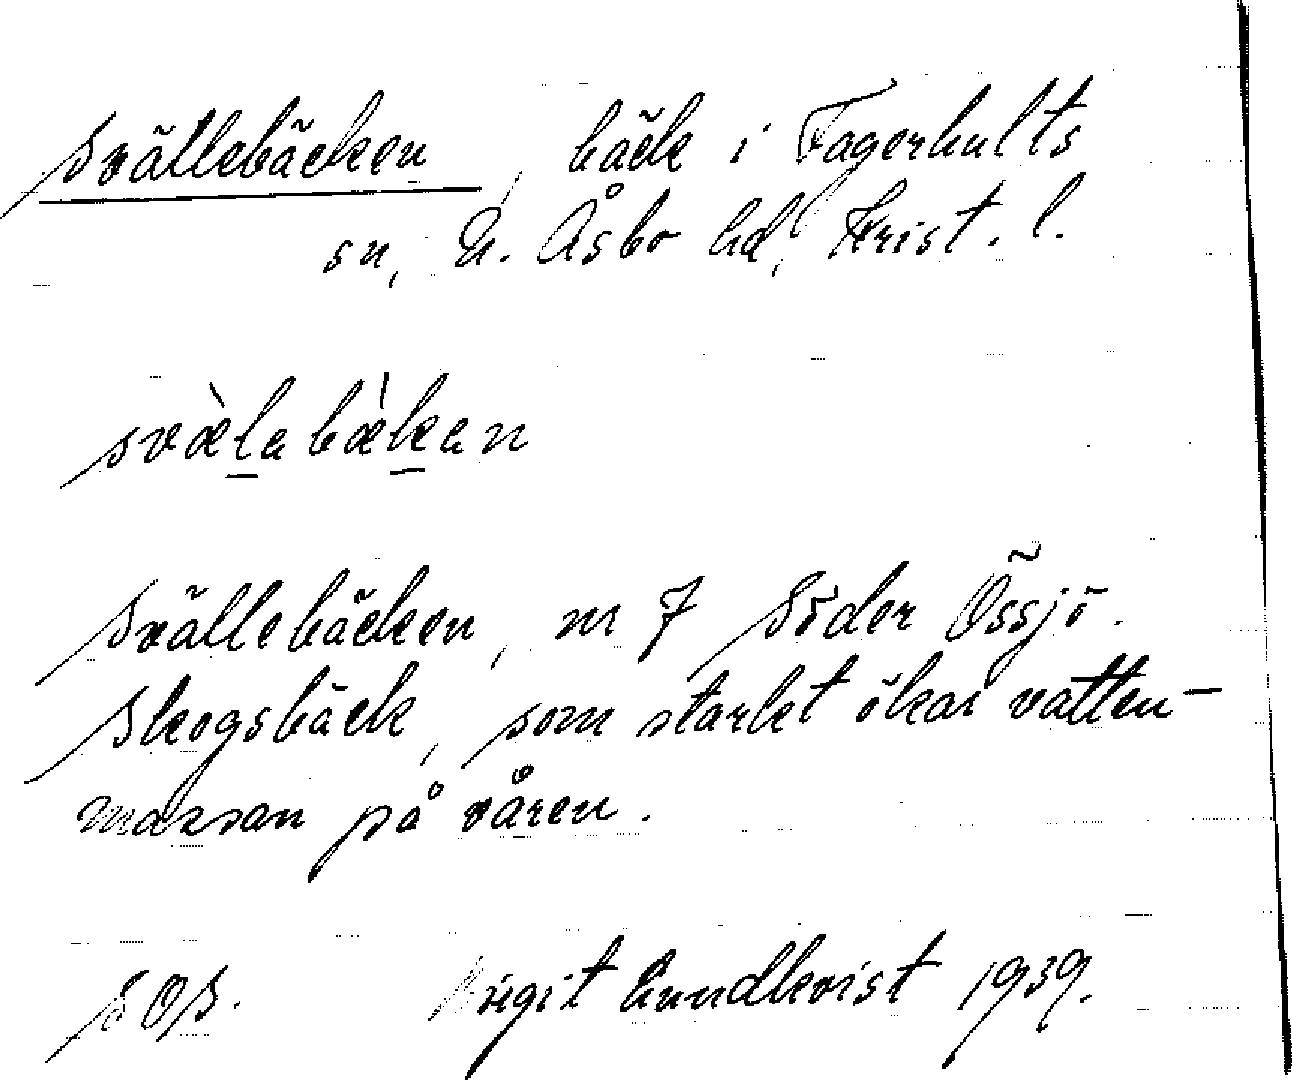 Svällebäcken, bäck i Fagerhults
sn, N. Åsbo hd, Krist. l.
svæ̀labæ̀kan
Svällebäcken, m 7 Söder Össjö.
Skogsbäck, som starkt ökar vatten-
massan på våren.
SOS. Birgit Lundkvist 1939.